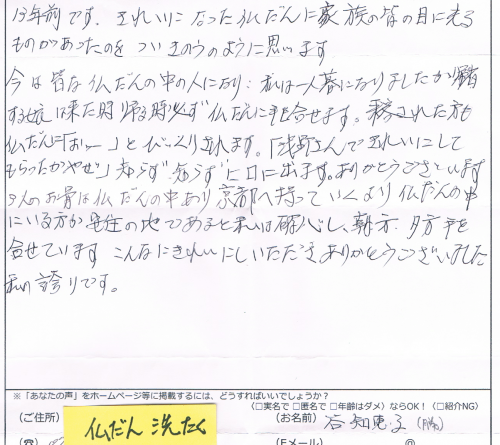 13年前です。きれいになった仏だんに家族の皆の目に光る
ものがあったのをついきのうのように思います
今は皆な仏だんの中の人になり：私は一人暮になりましたが帰省
する娘は来た時帰る時必ず仏だんに手を合せます。来客された方も
仏だんに「おぉー」とびっくりされます。「浅野さんできれいにして
もらったかやぜ」知らず知らず口に出ます。ありがとうございます
人のお骨は仏だんの中あり京都へ持っていくより仏だんの中
にいる方が安住の地であると私は確心し、朝方、夕方手を
合せています こんなにきれいにしいただきありがとうございました
私の誇りです。
※「あなたの声」をホームページ等に掲載するには、どうすればいいでしょうか？
（□実名で □匿名で □年齢はダメ）ならOK！（□紹介NG）
（ご住所） 仏だん 洗たく （お名前） 谷 知恵子
Eメール @